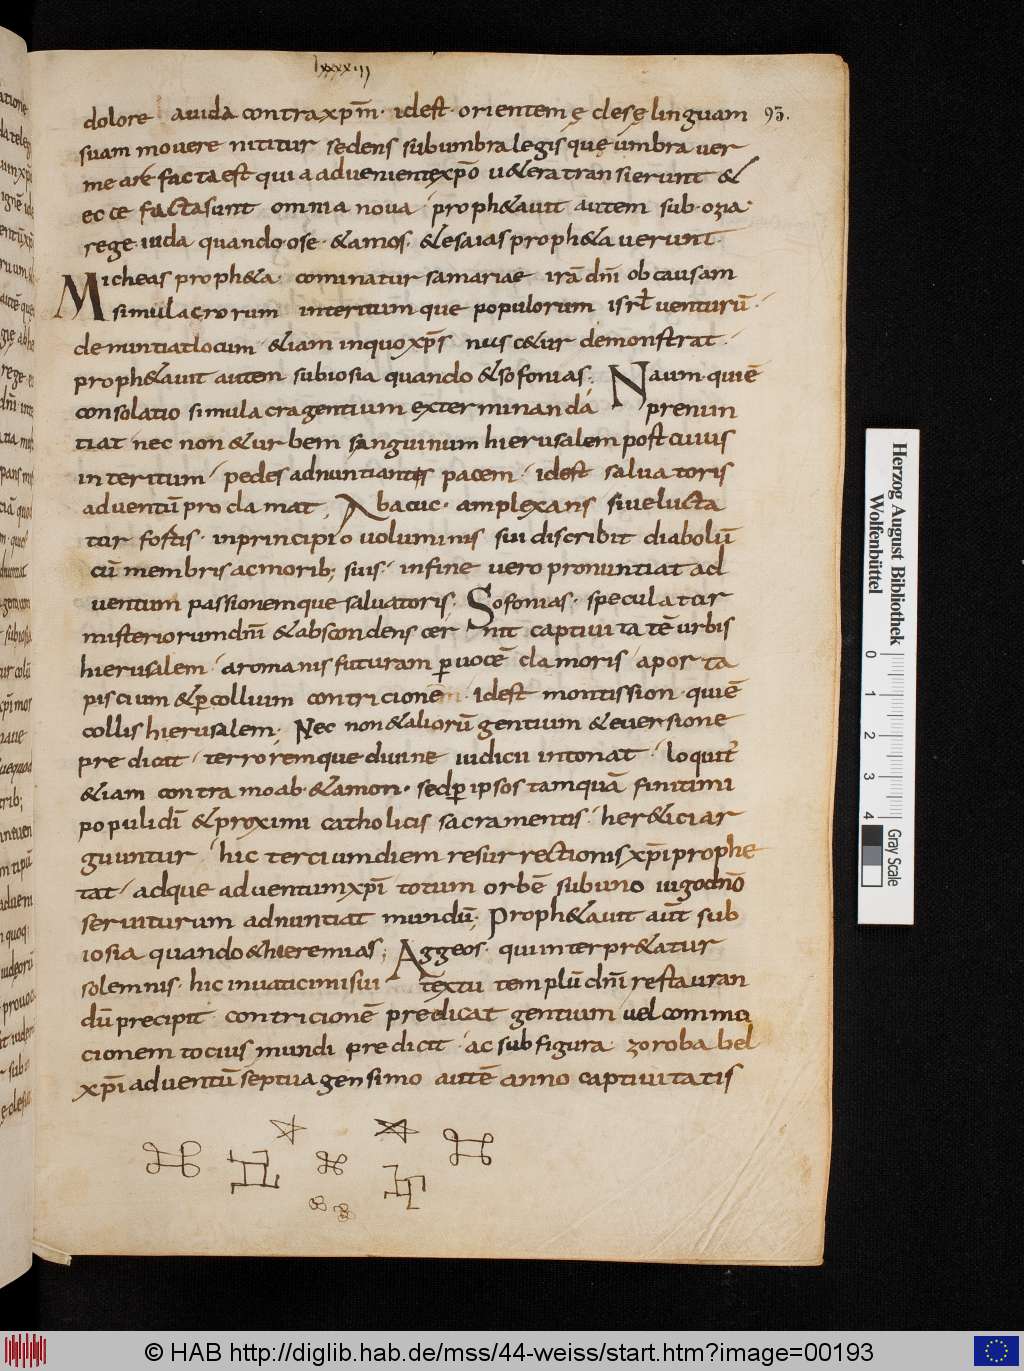 lxxxiij
93.
dolore auida contra xpm̄· idest· orientem ęclesę linguam
suam movere nititur sedens subumbra legis quę umbra ver
me arefacta est quia advenientexpō u&era transierunt &
ecce facta sunt omnia nova· proph&avit autem sub· ozia·
rege iuda quando· ose· &amos· &esaias proph&averunt·
Micheas proph&a· cominatur samariae irā dnī ob causam
simulacrorum interitum que populorum isrł venturū·
denuntiat locum· &iam in quo xps̄ nasc&ur demonstrat·
proph&avit autem subiosia quando &sofonias· Naum· qui ē
consolatio simulacra gentium exterminanda prenun
tiat nec non &urbem sanguinum hierusalem post cuius
interitum· pedes adnuntiantes pacem· idest salvatoris
adventū proclamat, Abacuc· amplexans sive lucta
tor fortis· in principio voluminis sui discribit diabolū
cū membris ac morib; suis· in fine vero pronuntiat ad
ventum passionemque salvatoris· Sofonias· speculator
misteriorum dnī &abscondens cernit captivitatē urbis
hierusalem· aromanis futuram p vocē clamoris· aporta
piscium &p collium contricionē· idest montis sion· qui ē
collis hierusalem· Nec non &aliorū gentium &eversione
predicit· terrorem que divine iudicii intonat· loquit̄
&iam contra moab· &amon· sed p ipsos tamquā finitimi
populi dī &proximi catholicis sacramentis· her&ici ar
guuntur· hic tercium diem resurrectionis xpī prophe
tat· adque adventum xpī totum orbē sub uno iugo dnō
serviturum adnuntiat mundū; Proph&avit aūt sub
iosia quando &hieremias; Aggeos· qui interpr&atur
solemnis· hic in vaticinii sui textu templū dnī restauran
dū precipit· contricionē predicat gentium vel commo
cionem tocius mundi predicit· ac sub figura zorobabel
xpī adventū septuagensimo autē anno captivitatis
Herzog August Bibliothek
Wolfenbüttel
0 1 2 3 4
Gray Scale
© HAB http://diglib.hab.de/mss/44-weiss/start.htm?image=00193